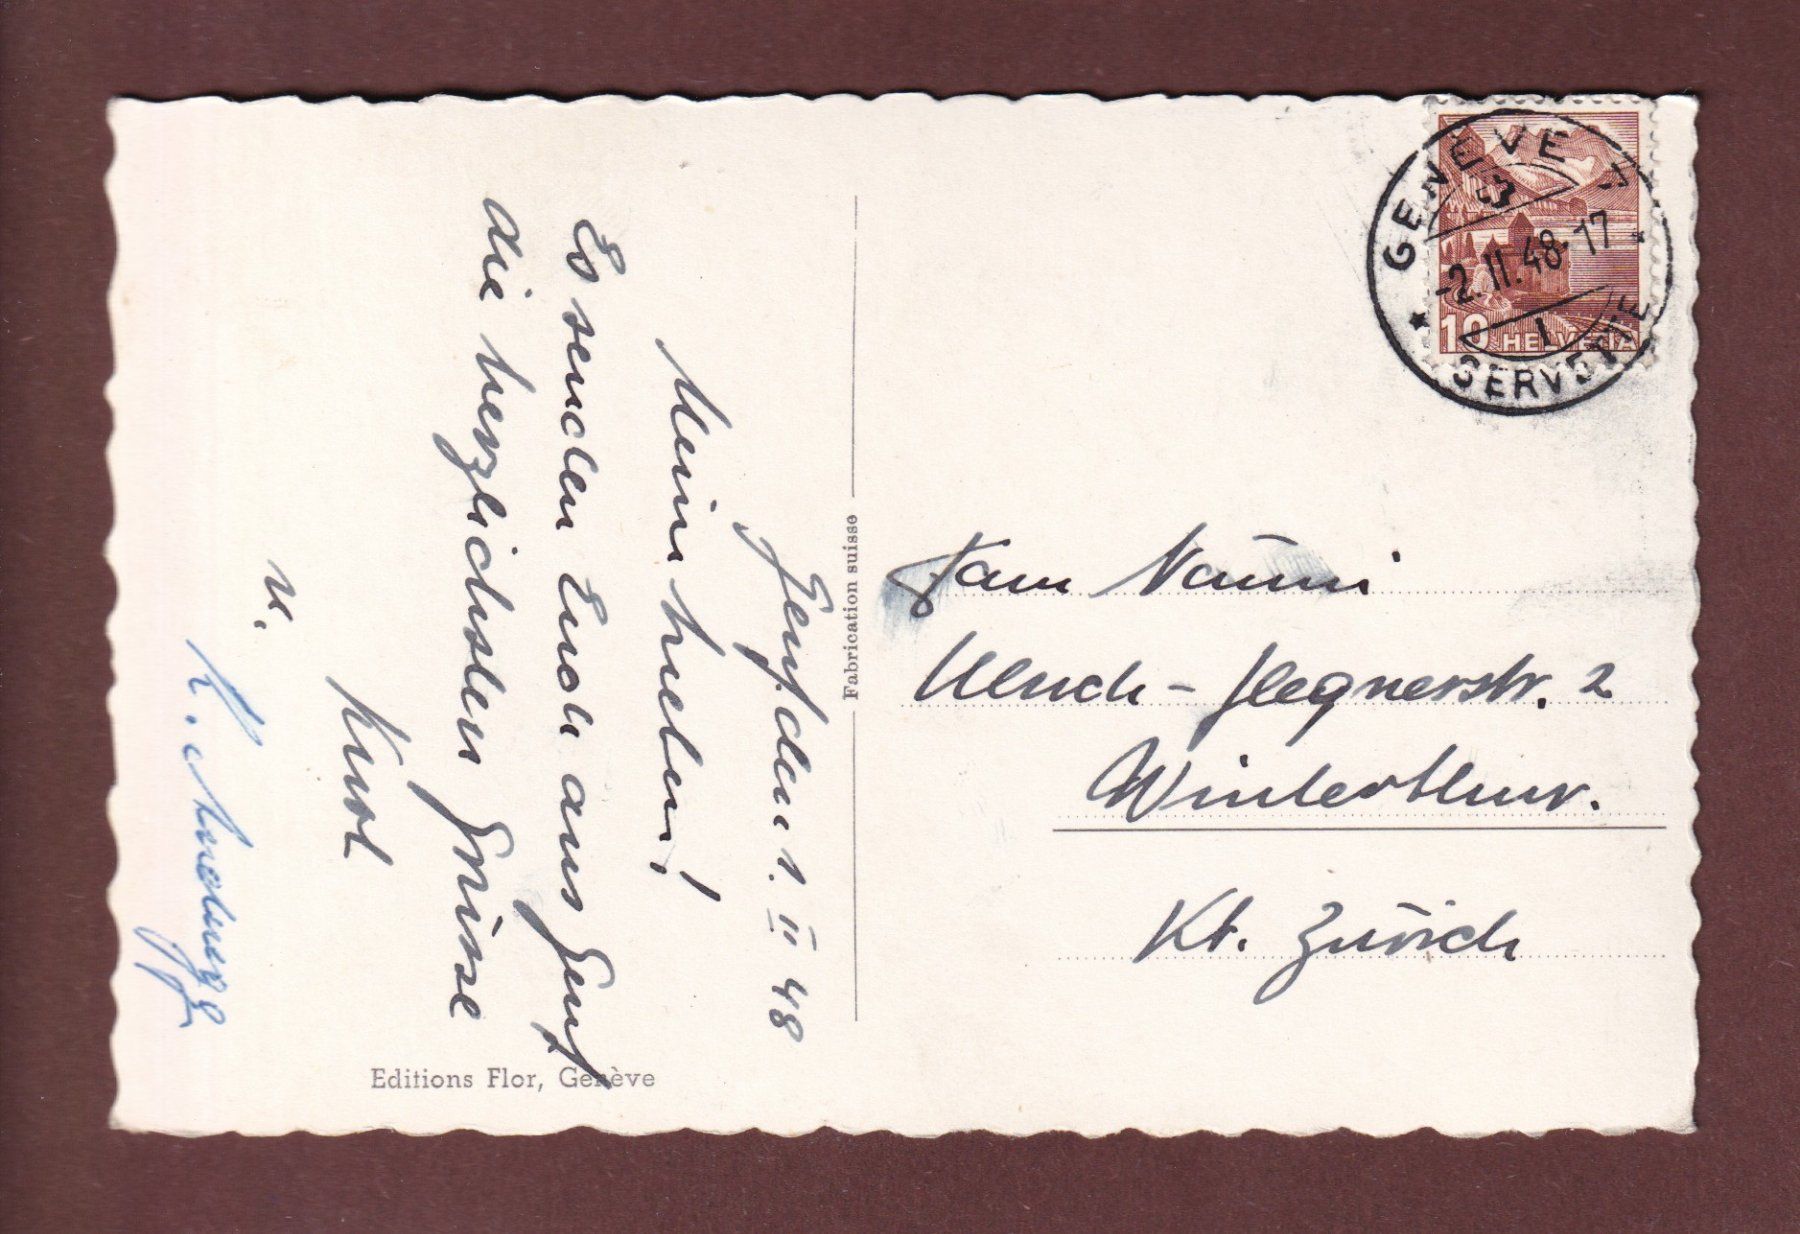 Genf, den 1. II 48
Meine lieben!
Es senden Euch aus Genf
die herzlichsten Grüsse
Kurt
u.
K.
Fabrication suisse
Editions Flor, Genève
GENÈVE 7
-2.II.48-17
1
SERVETTE
10 HELVETIA
Fam
Ulrich-Hegnerstr. 2
Winterthur.
Kt. Zürich